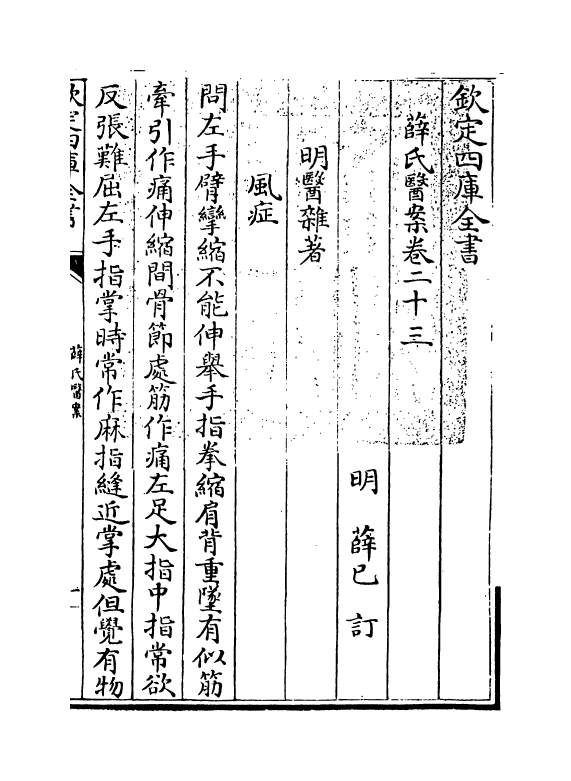 欽定四庫全書
薛氏醫案卷二十三
明 薛已 訂
明醫雜著
風症
問左手臂攣縮不能伸舉手指拳縮肩背重墜有似筋
牽引作痛伸縮間骨節處筋作痛左足大指中指常欲
反張難屈左手指掌時常作麻指縫近掌處但覺有物
欽定四庫全書
薛氏醫案
一